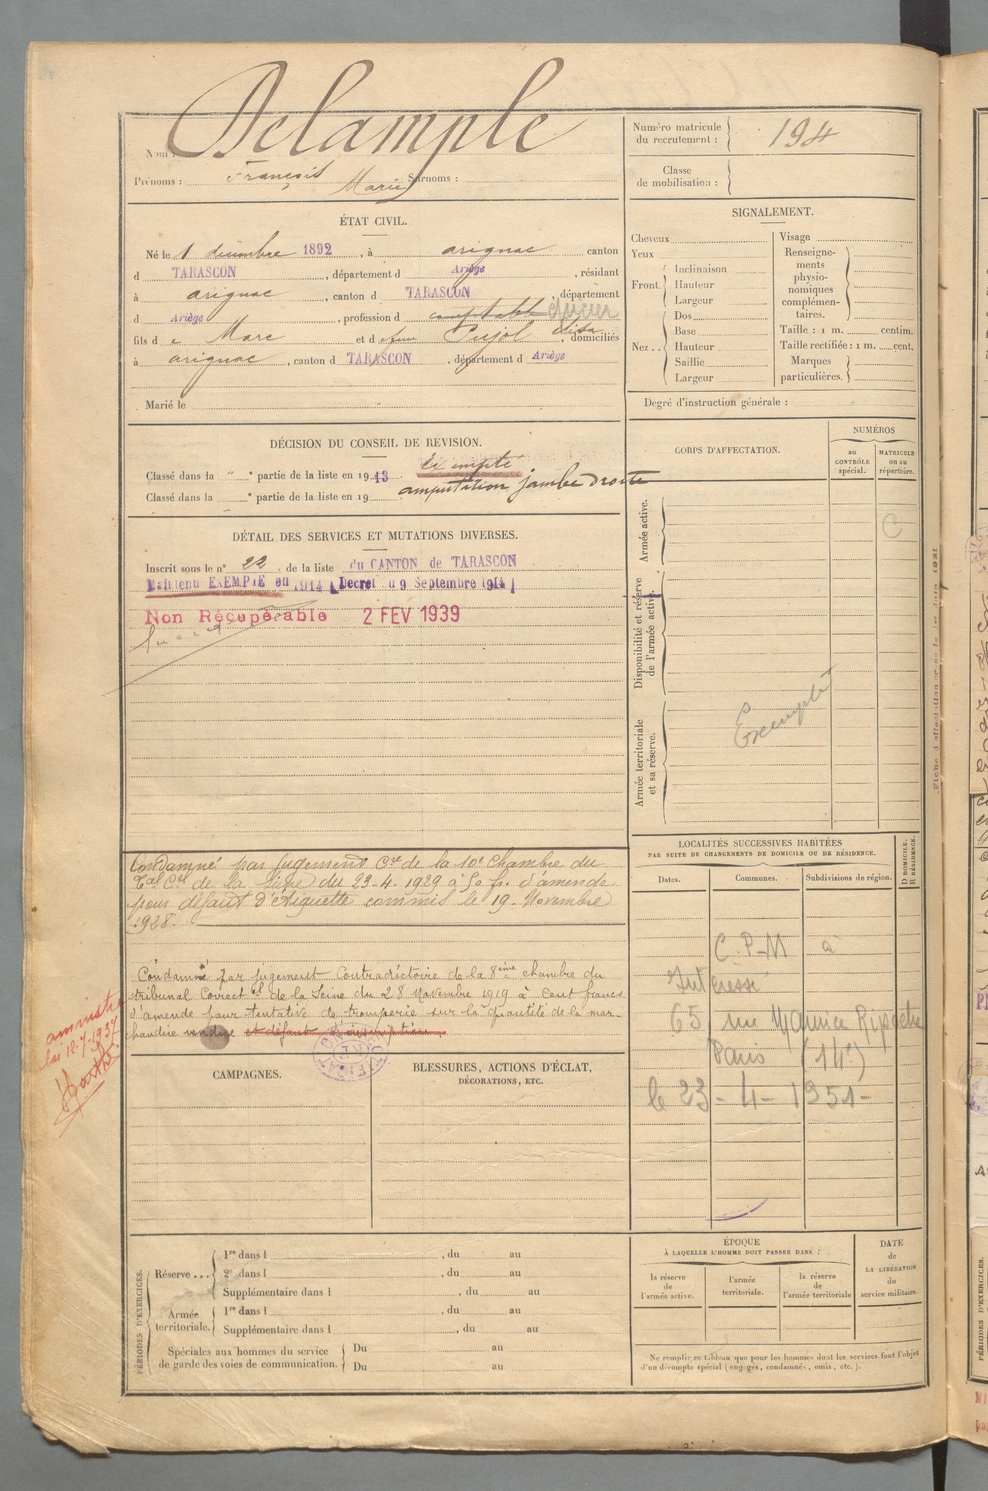 Nom : Delample
Prénoms : François Marie Surnoms :
Numéro matricule du recrutement : 194
Classe de mobilisation :
ÉTAT CIVIL.
Né le 1 décembre 1892, à arignac canton
d TARASCON, département d Ariège, résidant
à arignac, canton d TARASCON, département
d Ariège, profession d comptable épicier
fils de Marc et d feue Pujol élisa, domiciliés
à arignac, canton d TARASCON, département d Ariège
Marié le
SIGNALEMENT.
Cheveux
Yeux
Front. Inclinaison
Hauteur
Largeur
Nez .. Dos
Base
Hauteur
Saillie
Largeur
Visage
Renseigne-
ments
physio-
nomiques
complémen-
taires.
Taille : 1 m. centim.
Taille rectifiée : 1 m. cent.
Marques
particulières.
Degré d'instruction générale :
DÉCISION DU CONSEIL DE REVISION.
Exempté
Classé dans la " " partie de la liste en 1913
Classé dans la " partie de la liste en 19 amputation jambe droite
DÉTAIL DES SERVICES ET MUTATIONS DIVERSES.
Inscrit sous le n° 22 de la liste du CANTON de TARASCON
Maintenu EXEMPTÉ en 1914 (Decret du 9 Septembre 1914)
Non Récupérable 2 FEV 1939
Condamné par jugement Cre de la 10e Chambre du
Tal Cel de la Seine du 23-4-1929 à 50 fr. d'amende
pour défaut d'étiquette commis le 19 Novembre
1928.
Condamné par jugement Contradictoire de la 8ème chambre du
tribunal Correctel de la Seine du 28 Novembre 1919 à Cent francs
d'amende pour tentative de tromperie sur la quantité de la mar-
chandise vendue et défaut d'inscription
amnistié
loi 12-7-1937
CORPS D'AFFECTATION.
NUMÉROS
au CONTRÔLE spécial.
MATRICULE ou au répertoire.
Armée active.
C
Disponibilité et réserve de l'armée active.
Armée territoriale et sa réserve.
Exempté
LOCALITÉS SUCCESSIVES HABITÉES
PAR SUITE DE CHANGEMENTS DE DOMICILE OU DE RÉSIDENCE.
Dates.
Communes.
Subdivisions de région.
D DOMICILE.
R RÉSIDENCE.
C.P.M à
Intéressé
65 rue Maurice Ripoche
Paris (14e)
le 23-4-1951-
CAMPAGNES.
BLESSURES, ACTIONS D'ÉCLAT,
DÉCORATIONS, ETC.
PÉRIODES D'EXERCICES.
Réserve ... 1re dans l , du au
2e dans l , du au
Supplémentaire dans l , du au
Armée territoriale. 1re dans l , du au
Supplémentaire dans l , du au
Spéciales aux hommes du service
de garde des voies de communication. Du au
Du au
ÉPOQUE
À LAQUELLE L'HOMME DOIT PASSER DANS :
la réserve de l'armée active.
l'armée territoriale.
la réserve de l'armée territoriale
DATE
de
LA LIBÉRATION
du
service militaire.
Ne remplir ce tableau que pour les hommes dont les services font l'objet
d'un décompte spécial (engagés, condamnés, omis, etc.).
PÉRIODES D'EXERCICES.